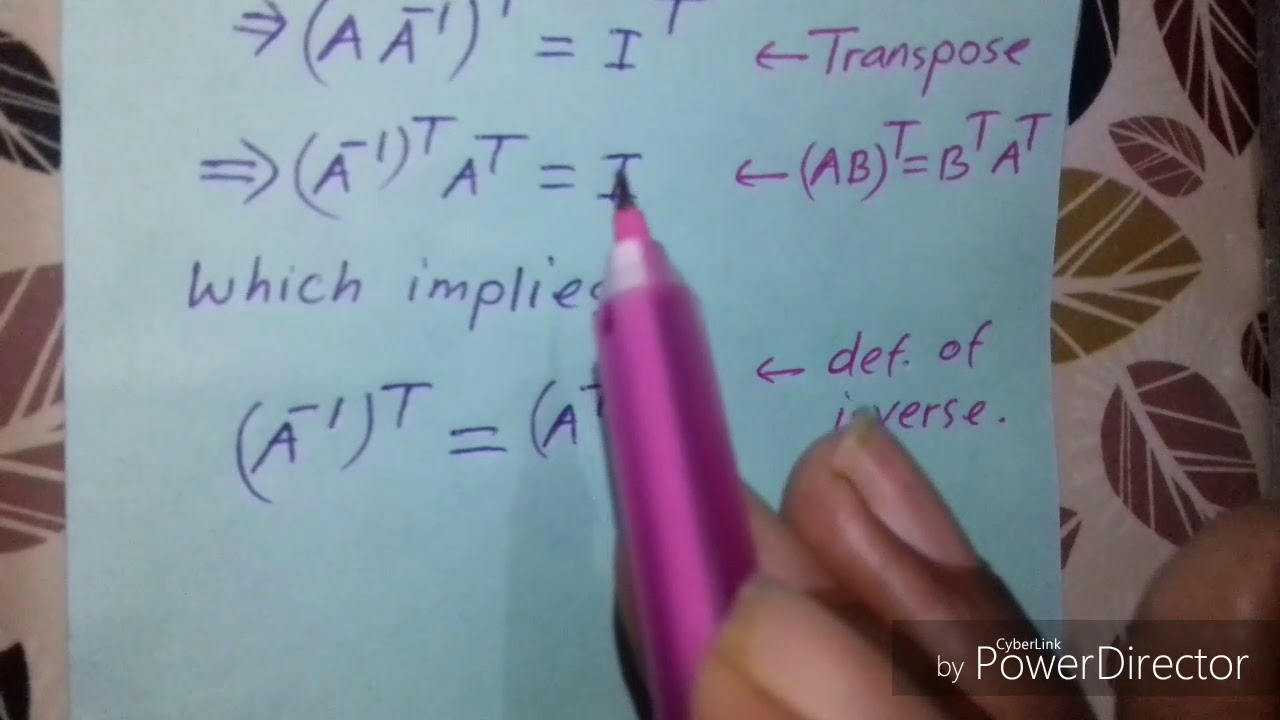 ⇒ (A A⁻¹)ᵀ = Iᵀ ← Transpose
⇒ (A⁻¹)ᵀ Aᵀ = I ← (AB)ᵀ = Bᵀ Aᵀ
Which implies
(A⁻¹)ᵀ = (Aᵀ ← def. of
inverse.
CyberLink
by PowerDirector